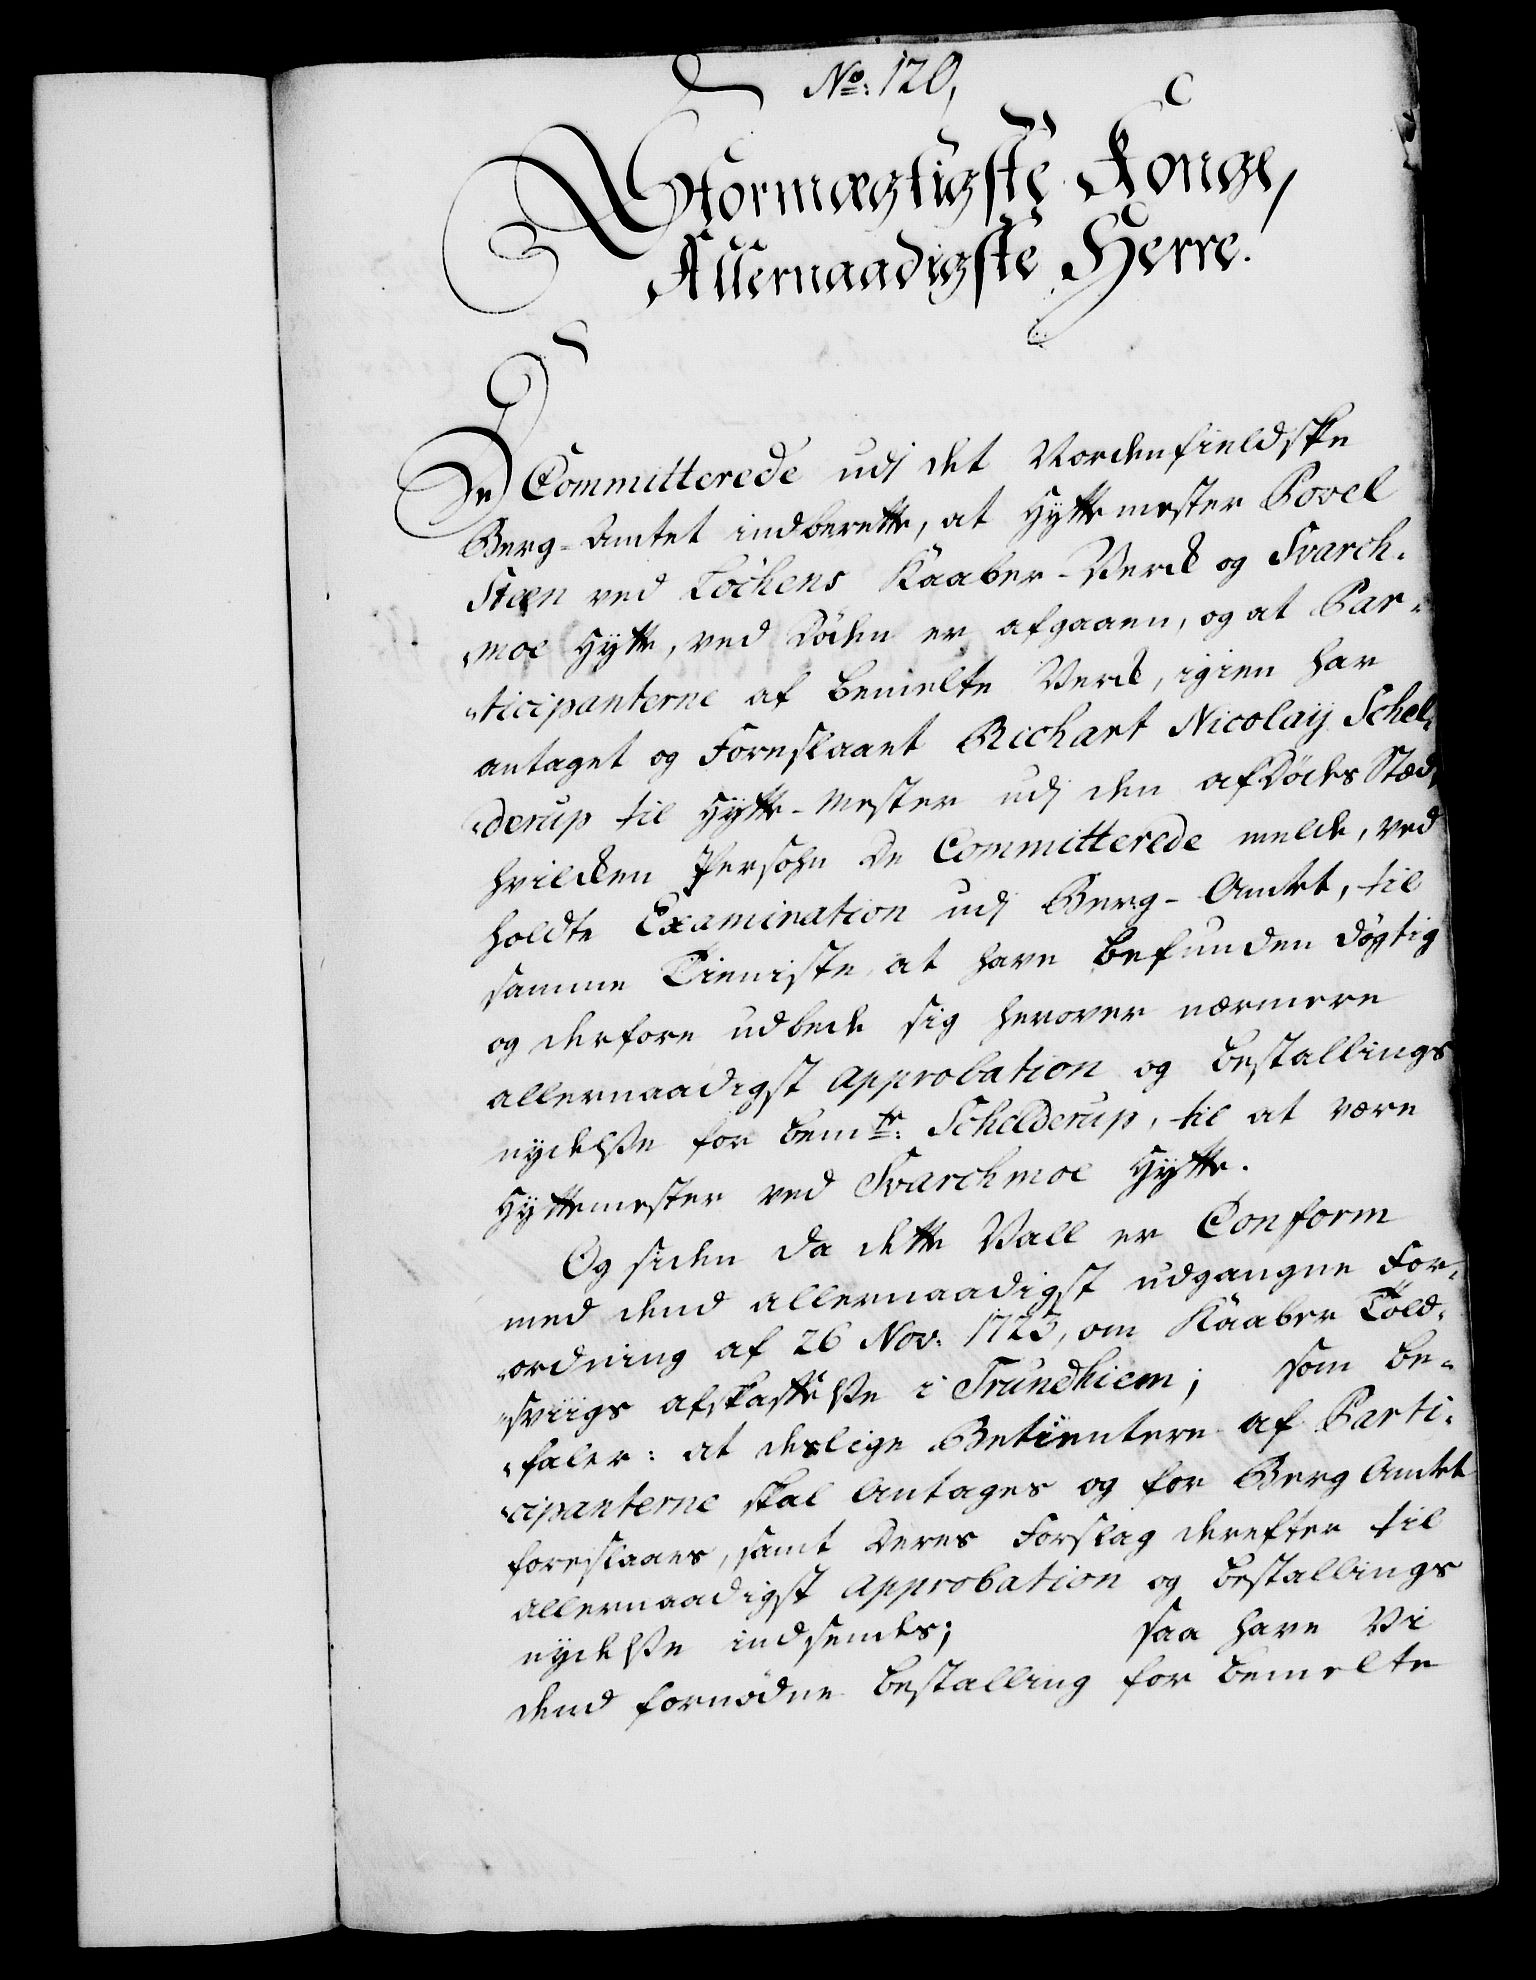 No: 120,
Stormægtigste Konge,
Allernaadigste Herre.
De Committerede udj det Nordenfieldske
Berg-Amtet indberette, at Hyttemester Povel
Steen ved Löchens Kaaber-Verck og Svarch-
moe Hytte, ved Döden er afgaaen, og at Par-
ticipanterne af bemelte Verck, igien har
antaget og Foreslaaet Richart Nicolaÿ Schel-
derup til Hytte-Mester udj den afdödes Stæd,
hvilcken Persohn De Committerede melde, ved
holdte Examination udj Berg-Amtet, til
samme Tieniste at have befunden dögtig
og derfore udbede sig herover nærmere
allernaadigst approbation og bestallings
nydelsse for bemte: Schelderup, til at være
Hyttemester ved Svarchmoe Hytte.
Og siden da dette Vall er Conform
med dend allernaadigst udgangne For-
ordning af 26 Nov: 1723, om Kaaber Told-
sviigs afskaffelsse i Trundhiem; som be-
faler: at deslige Betientere af Parti-
cipanterne skal Antages og for Berg Amtet
foreslaaes, samt deres Forslag derefter til
allernaadigst approbation og bestallings
nydelsse indsendes; saa have Vi
dend fornödne bestalling for bemelte